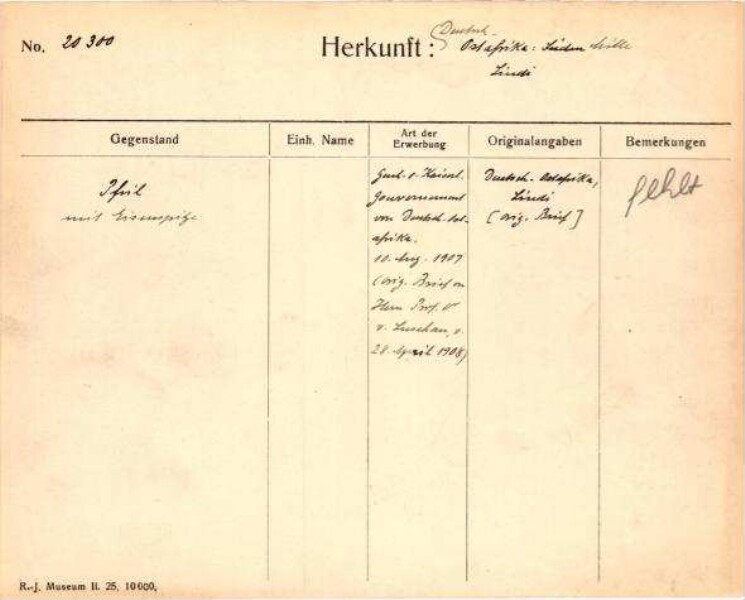 No. 20 300
Herkunft: Deutsch-
Ostafrika: Süden
Lindi
Gegenstand
Einh. Name
Art der
Erwerbung
Originalangaben
Bemerkungen
Pfeil
mit Eisenspitze
Gesch. v. Kaiserl.
Gouvernement
von Deutsch-Ost-
afrika.
10. Aug. 1907
(orig. Brief an
Herrn Prof. Dr
v. Luschan, v.
28. April 1908)
Deutsch-Ostafrika,
Lindi
[orig. Brief]
fehlt
R.-J. Museum II. 25. 10000.